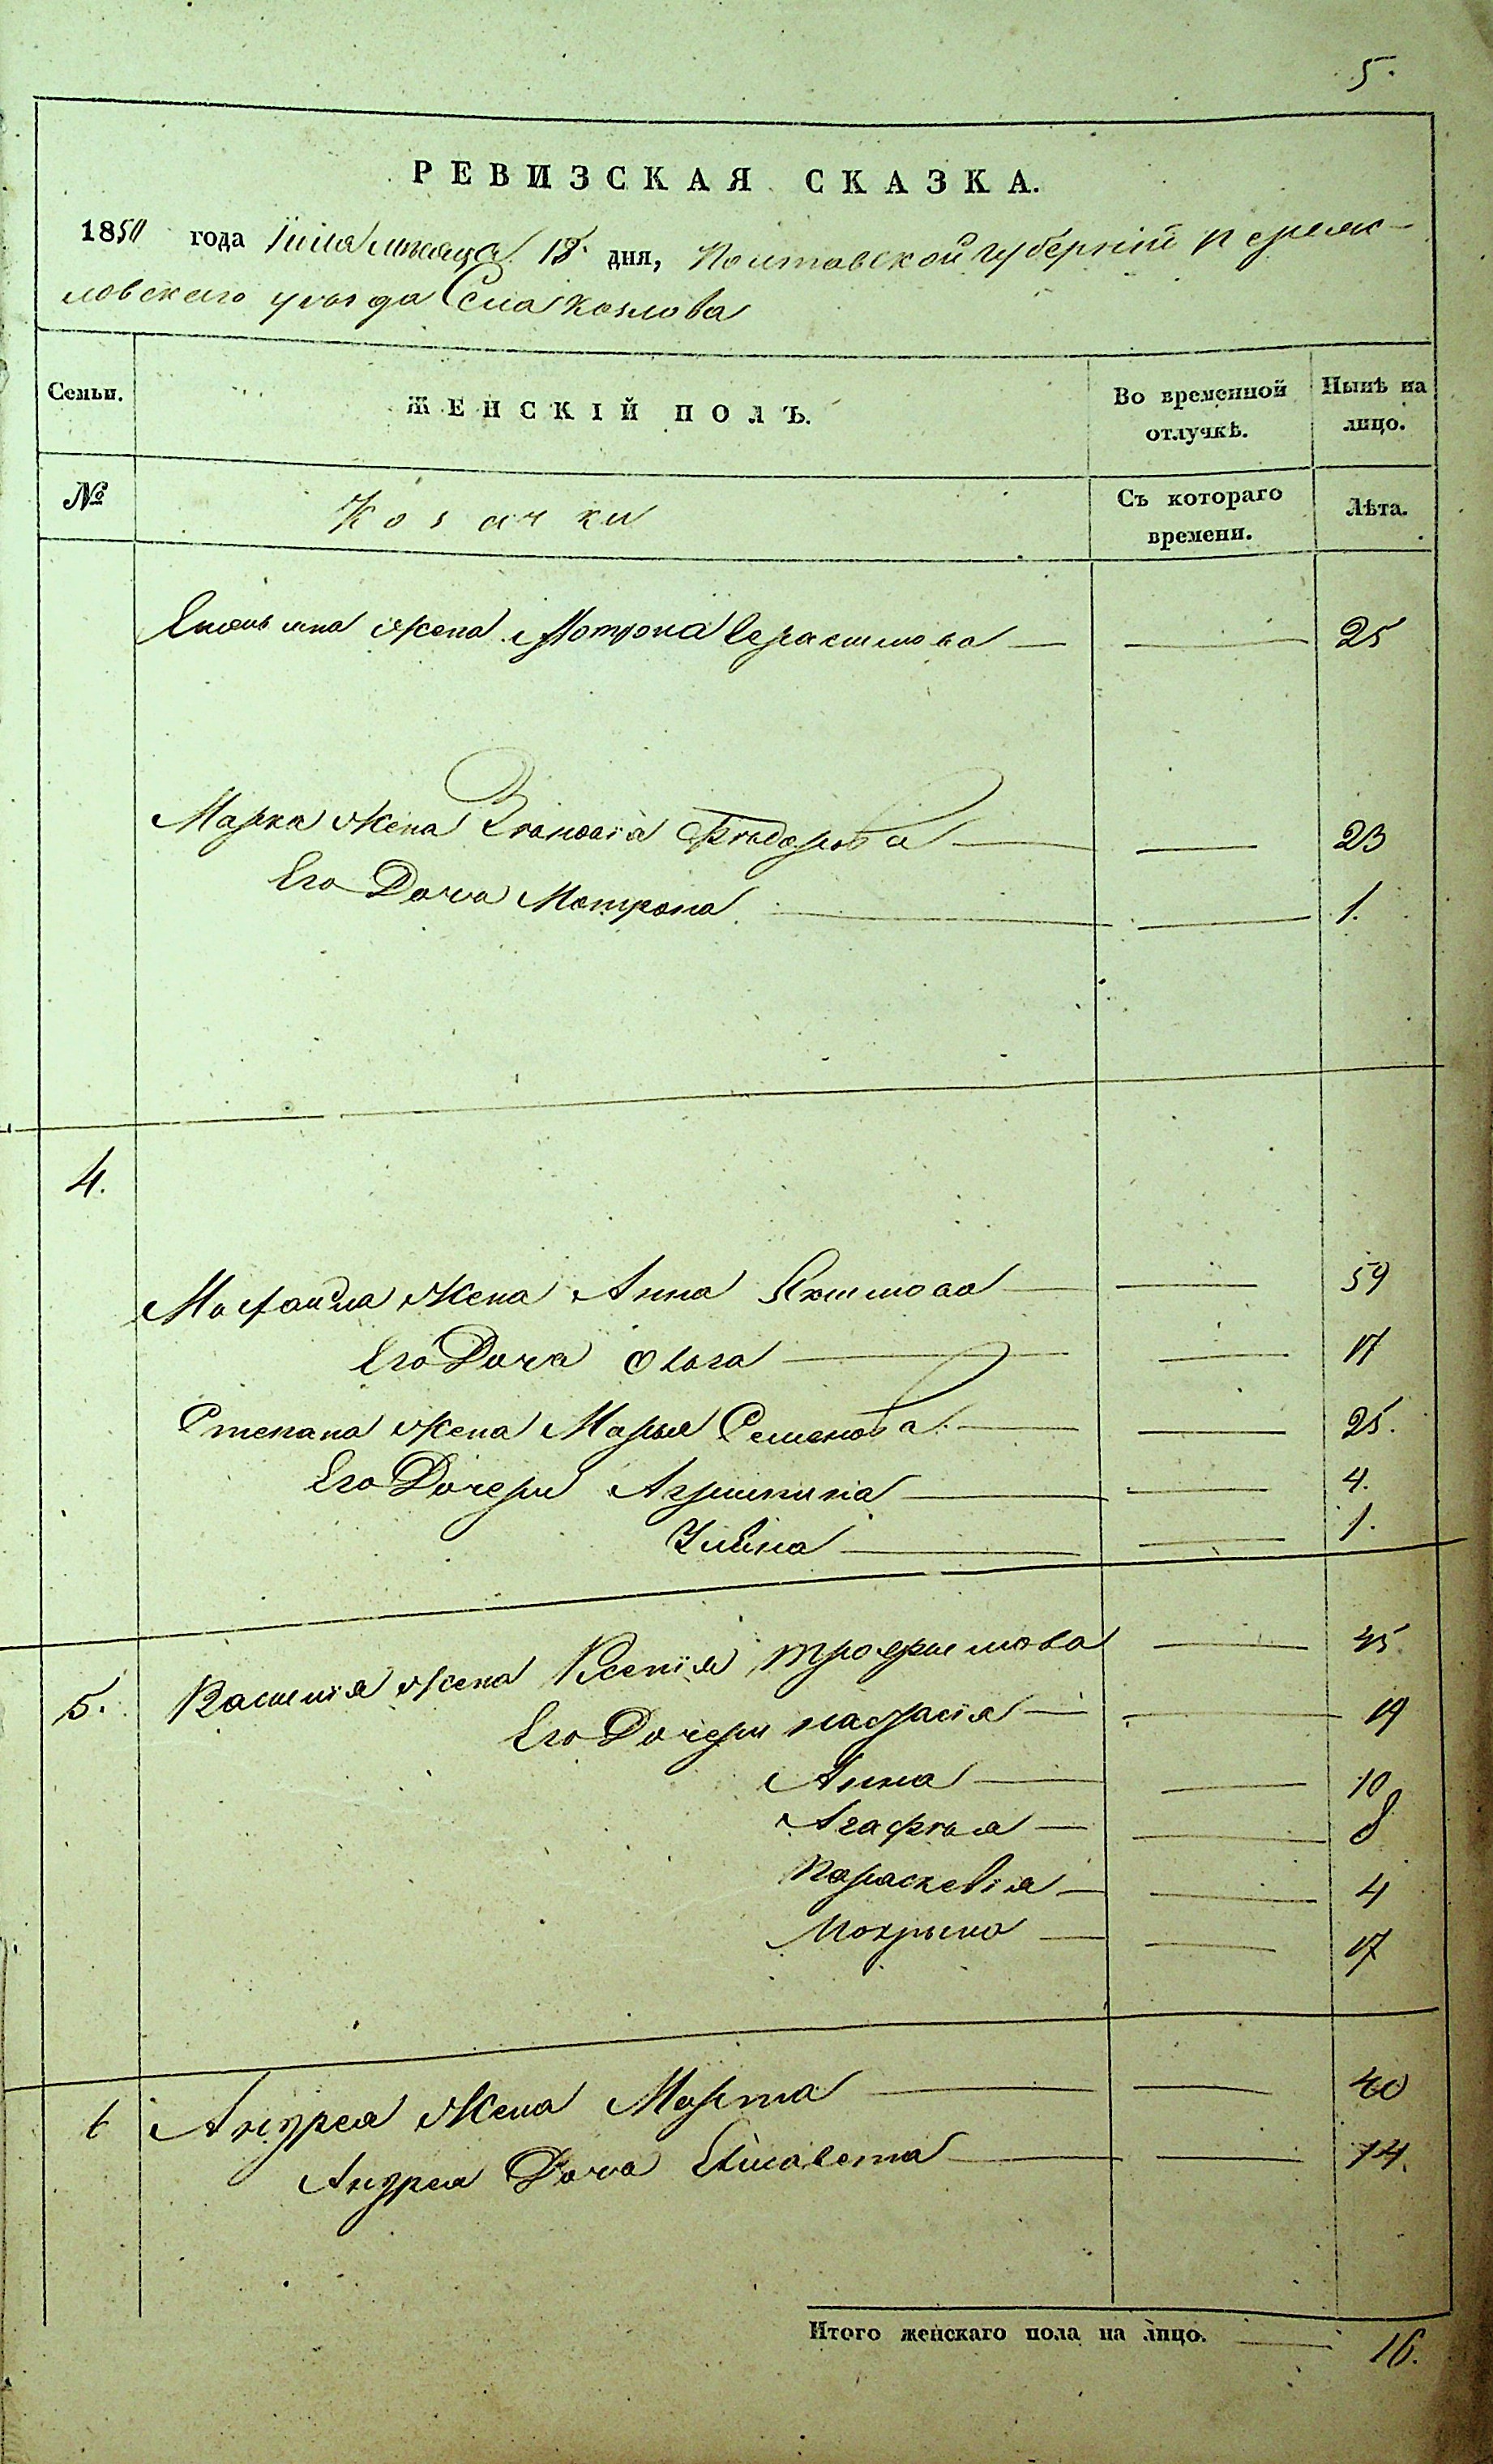 5.
РЕВИЗСКАЯ СКАЗКА.
1850 года Іюля месяца 18 дня, Полтавской губерніи переяс-
ловского уезда Села Козлова
Семьи. ЖЕНСКІЙ ПОЛЪ. Во временной отлучкѣ. Нынѣ на лицо.
№ Козачки Съ котораго времени. Лѣта.
жена Мотрона Герасимова — — 25
Марка жена Федорова — — 23
Его Доча Мотрона — — 1.
4.
Михаила жена Анна Якимова — — 59
Его Доча Ольга — — 17
Степана жена Марья Семенова — — 25.
Его Дочери Агрипина — — 4.
Улита — — 1.
5. Василія жена Ксенія Трофимова — 45
Его Дочери настасія — — 19
Анна — — 10
Агафья — — 8
Параскевія — — 4
Мокрына — — 17
6 Андрея Жена Марта — — 40
Андрея Доча Елисавета — — 14.
Итого женскаго пола на лицо. — 16.